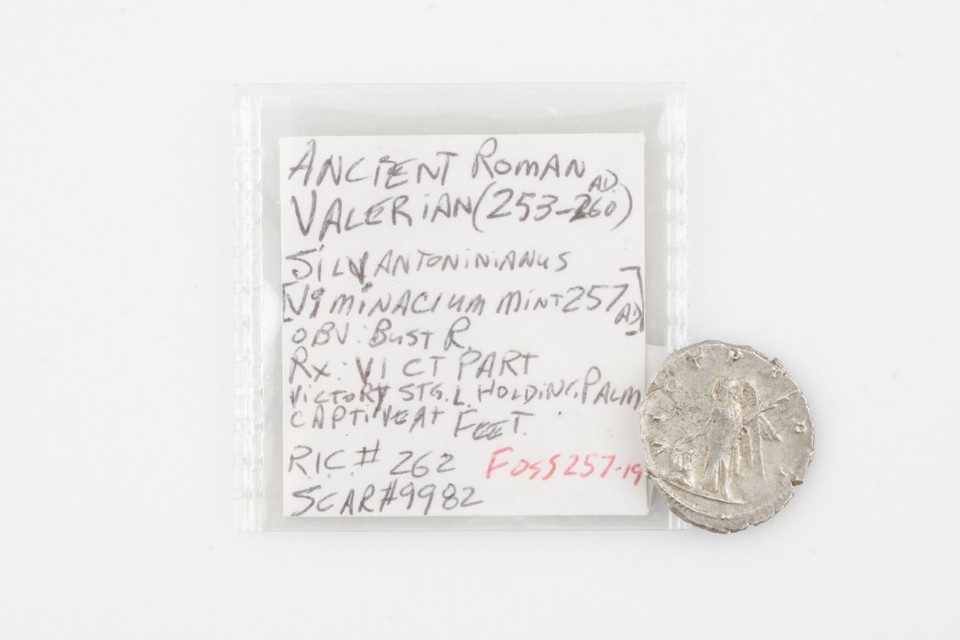 ANCIENT ROMAN
VALERIAN (253-260) AD.
SILV ANTONINIANUS
[VIMINACIUM MINT 257 AD]
OBV: BUST R.
RX: VICT PART
VICTORY STG. L. HOLDING PALM
CAPTIVE AT FEET.
R.I.C.# 262 FOSS 257-19
SCAR#9982